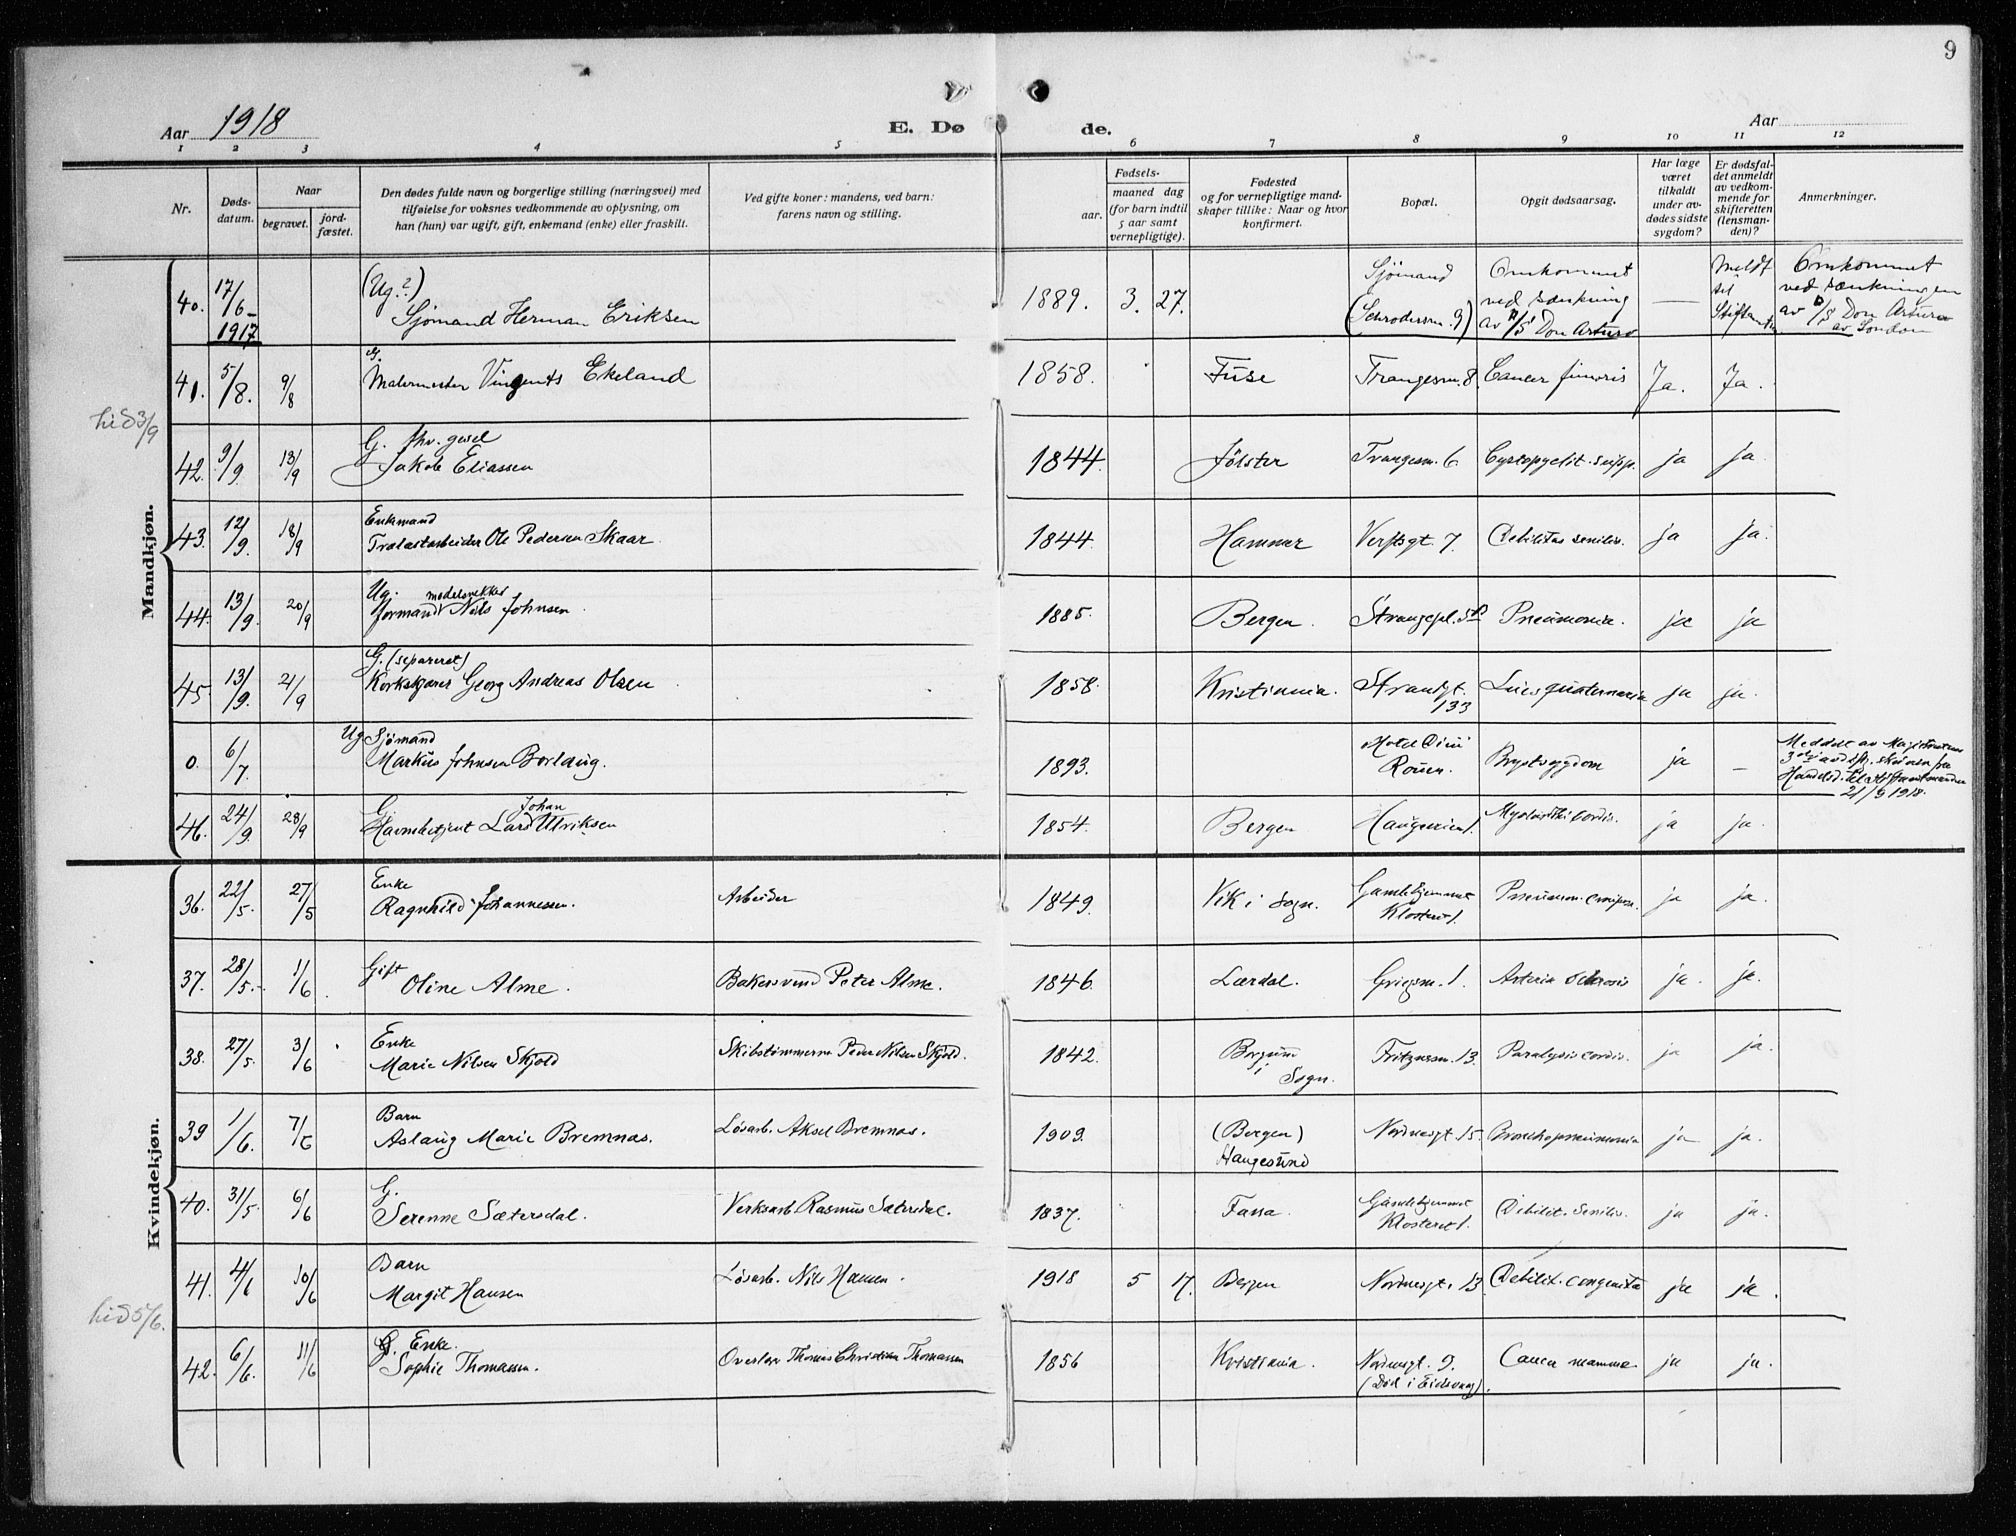 9
Aar 1918
E. Dø
de.
Aar
1 2 3 4 5 6 7 8 9 10 11 12
Nr.
Døds-
datum.
Naar
begravet.
jord-
fæstet.
Den dødes fulde navn og borgerlige stilling (næringsvei) med
tilføielse for voksnes vedkommende av oplysning, om
han (hun) var ugift, gift, enkemand (enke) eller fraskilt.
Ved gifte koner: mandens, ved barn:
farens navn og stilling.
Fødsels-
aar.
maaned dag
(for barn indtil
5 aar samt
vernepligtige).
Fødested
og for vernepligtige mand-
skaper tillike: Naar og hvor
konfirmert.
Bopæl.
Opgit dødsaarsag.
Har læge
været
tilkaldt
under av-
dødes sidste
sygdom?
Er dødsfal-
det anmeldt
av vedkom-
mende for
skifteretten
(lensman-
den)?
Anmerkninger.
Mandkjøn.
40. 17/6 1917
(Ug.?)
Sjømand Herman Eriksen
1889. 3. 27.
Sjømand
Omkommet
ved sænkning
av D/S Don Arturo
—
Meldt
til
Omkommet
ved sænkningen
av D/S Don Arturo
av London
41. 5/8. 9/8
G.
Malermester Vingents Ekeland
1858. Fuse Trangesm. 8. Cancer Ja. Ja.
hid 3/9
42. 9/9 13/9
G. fhv. gesel
Jakob Eliassen
1844. Jölster Trangesm. 6 Cystopyelit. supp. ja ja.
43. 12/9. 18/9
Enkmand
Trælastarbeider Ole Pedersen Skaar.
1844. Hammer Verftsgt. 7. Debilitas senilis. ja ja.
44. 13/9. 20/9
Ug.
Formand Nils Johnsen
1885. Bergen. Strangepl. Pneumonia. ja ja
45. 13/9. 21/9
G. (separeret)
Korkskjærer Georg Andreas Olsen
1858. Kristiania. Strandgt.
133
Lues ja ja.
0. 6/7.
Ug. Sjömand
Markus Johnsen Borlaug.
1893.
Hotel
Rouen.
Brystsygdom ja —
Meddelt av Magistratens
21/9 1918.
46. 24/9. 28/9
G. Johan
Havnebetjent Lars Ulriksen
1854. Bergen Haugeveien 1. cordis. ja ja.
Kvindekjøn.
36. 22/5. 27/5
Enke
Ragnhild Johannesen.
Arbeider
1849. Vik i Sogn.
Gamlehjemmet
Klosteret 1.
Pneumon. ja ja.
37. 28/5. 1/6.
Gift
Oline Alme.
Bakersvend Peter Alme.
1846. Lærdal. Griegsm. 1. Arterio sclerosis ja. ja.
38. 27/5. 3/6
Enke
Marie Nilsen Skjold
Skibstömmerm Peder Nilsen Skjold.
1842. Borgund
i
Sogn.
Fritznersm. 13. Paralysis cordis. ja ja.
39 1/6. 7/6
Barn
Aslaug Marie Bremnes.
Lösarb. Aksel Bremnes.
1909. (Bergen)
Haugesund
Nordnesgt. 15. Bronchopneumonia ja ja.
40. 31/5. 6/6
G.
Serenne Sætersdal.
Verksarb Rasmus Sætersdal.
1837. Fana.
Gamlehjemmet
Klosteret 1.
Debilit. senilis. ja ja.
41. 4/6 10/6
Barn
Margit Hansen
Lösarb. Nils Hansen.
1918 5 17. Bergen Nordnesgt. 13. Debilit. congenita ja ja.
hid 5/6.
42. 6/6. 11/6
G. Enke.
Sophie Thomassen.
Thomas Christian Thomassen
1856 Kristiania. Nordnesgt. 9.
(Död i Eidsvaag).
Cancer mammae ja ja.